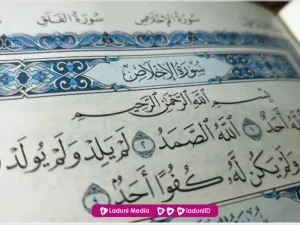 سُورَةُ الإِخْلَاصِ سُورَةُ الفَلَقِ
سُورَةُ الإِخْلَاصِ
اللَّهِ الرَّحْمَٰنِ الرَّحِيمِ
أَحَدٌ ١ اللَّهُ الصَّمَدُ ٢ لَمْ يَلِدْ وَلَمْ يُولَدْ
وَلَمْ يَكُن لَّهُ كُفُوًا أَحَدٌ ٤
Laduni Media laduniID